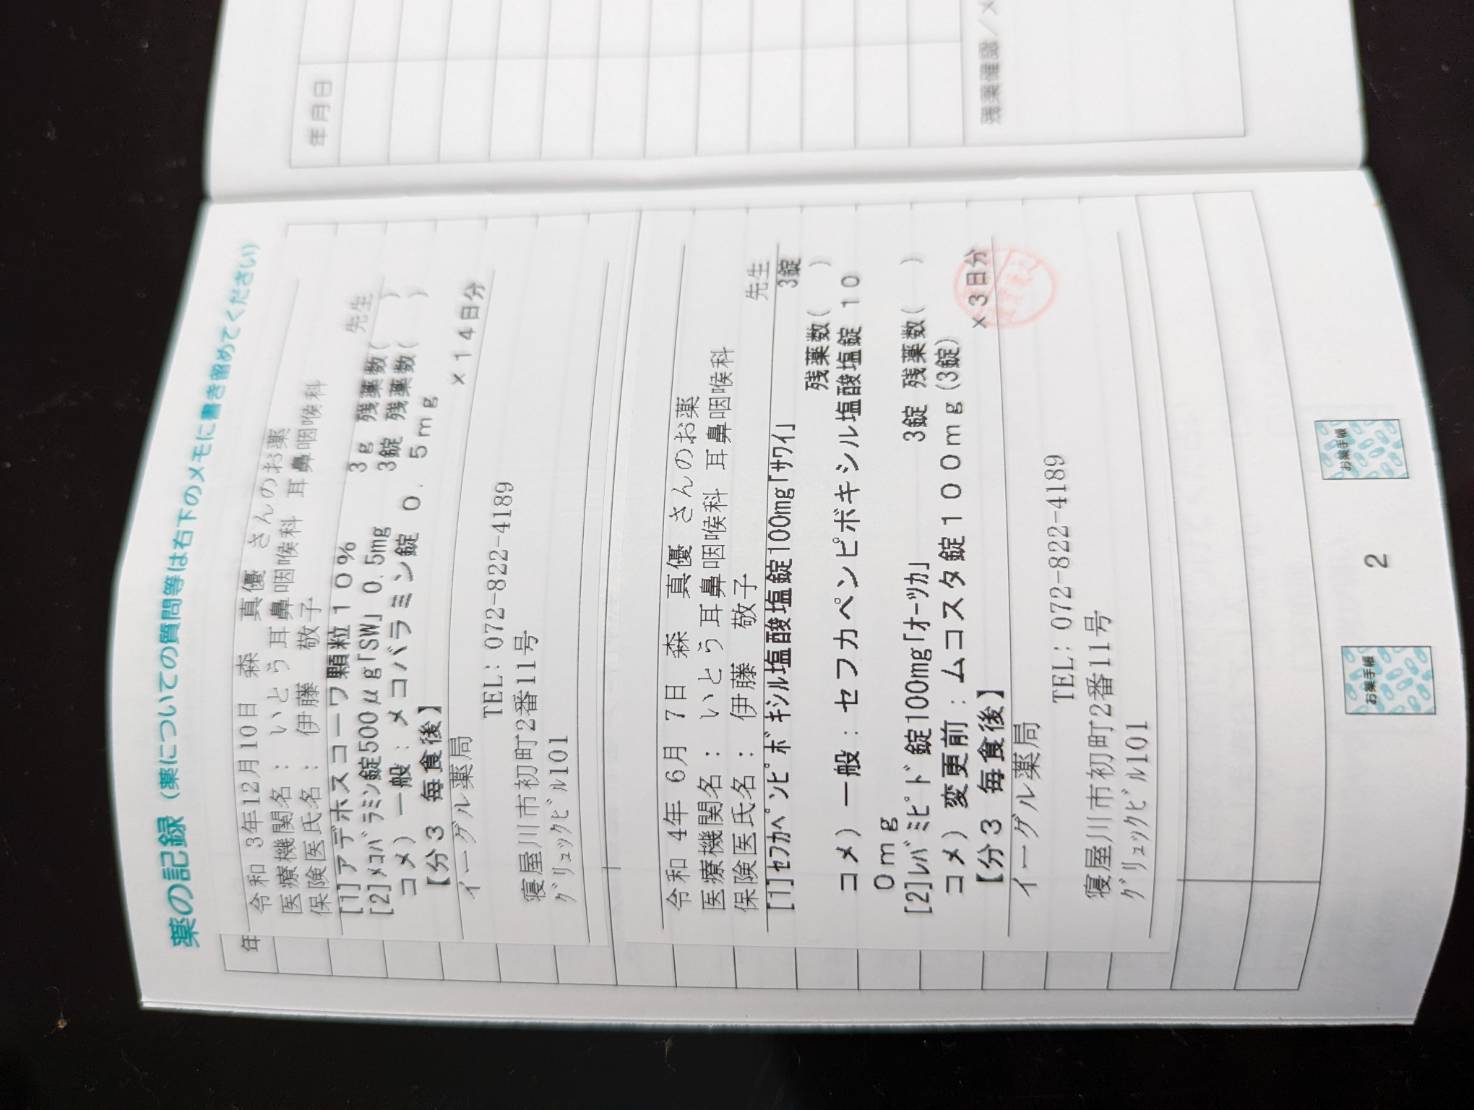 年月日
残薬確認/メ
薬の記録 (薬についての質問等は右下のメモに書き留めてください)
年
令和 3年12月10日 森 真優 さんのお薬
医療機関名: いとう耳鼻咽喉科 耳鼻咽喉科
保険医氏名: 伊藤 敬子 先生
[1]アデホスコーワ顆粒10% 3g 残薬数( )
[2]メコバラミン錠500μg「SW」0.5mg 3錠 残薬数( )
コメ) 一般:メコバラミン錠 0.5mg
【分3 毎食後】 ×14日分
イーグル薬局
TEL: 072-822-4189
寝屋川市初町2番11号
グリュックビル101
令和 4年 6月 7日 森 真優 さんのお薬
医療機関名: いとう耳鼻咽喉科 耳鼻咽喉科
保険医氏名: 伊藤 敬子 先生
[1]セフカペンピボキシル塩酸塩錠100mg「サワイ」 3錠
残薬数( )
コメ) 一般:セフカペンピボキシル塩酸塩錠 10
0mg
[2]レバミピド錠100mg「オーツカ」 3錠 残薬数( )
コメ) 変更前:ムコスタ錠100mg(3錠)
【分3 毎食後】 ×3日分
イーグル薬局
TEL: 072-822-4189
寝屋川市初町2番11号
グリュックビル101
お薬手帳
2
お薬手帳